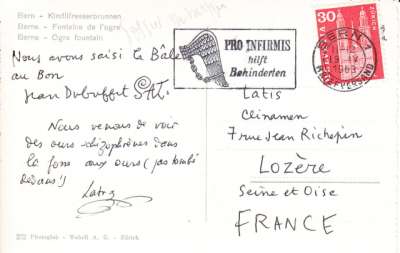 Bern - Kindlifresserbrunnen
Berne - Fontaine de l'ogre
Berne - Ogre fountain
Nous avons saisi le Bâle
au Bon
Jean Dubuffet
Nous venons de voir
des ours schizophrènes dans
la fons aux ours (pas tombé
dedans!)
Latis
Photoglob - Wehrli A. G. - Zürich
PRO INFIRMIS
hilft
Behinderten
30
HELVETIA
ZÜRICH
BERN 1
1963
BRIEFVERSAND
Latis
Clinamen
7 rue Jean Richepin
Lozère
Seine et Oise
FRANCE